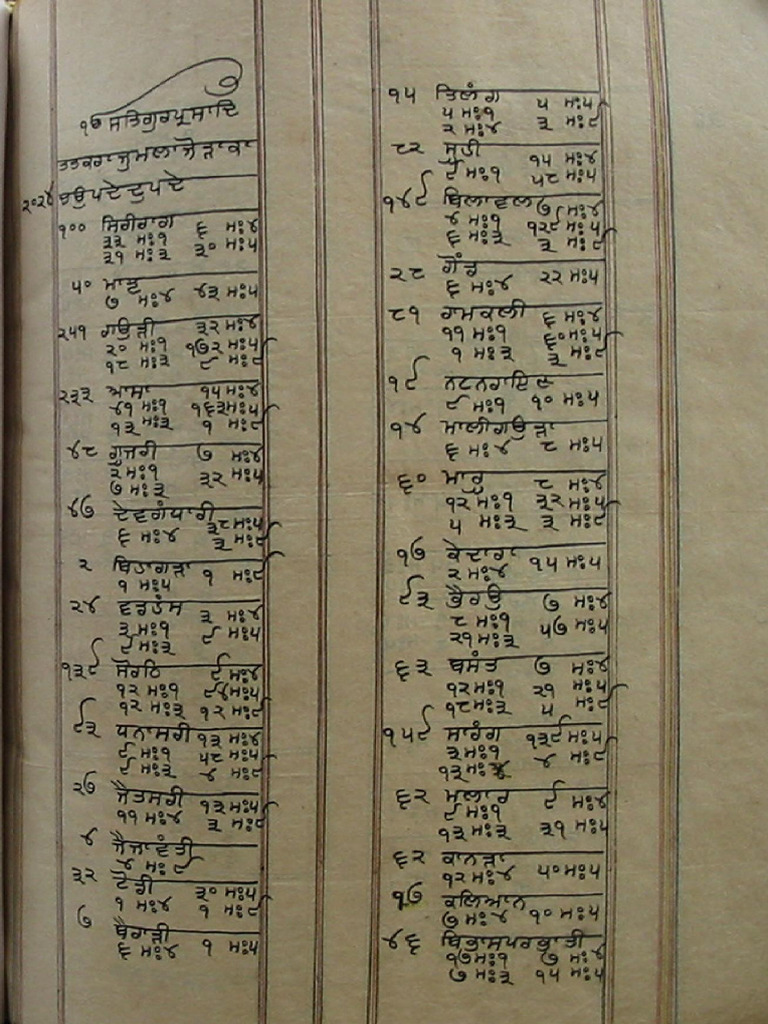 ੴ ਸਤਿਗੁਰਪ੍ਰਸਾਦਿ
ਤਤਕਰਾ ਜੁਮਲਾ ਜੋੜਾ ਕਾ
੨੦੨੪ ਚਉਪਦੇ ਦੁਪਦੇ
੧੦੦ ਸਿਰੀਰਾਗ ੬ ਮਃ੪
੩੩ ਮਃ੧ ੩੦ ਮਃ੫
੩੧ ਮਃ੩
੫੦ ਮਾਝ
੭ ਮਃ੪ ੪੩ ਮਃ੫
੨੫੧ ਗਉੜੀ ੩੨ ਮਃ੪
੨੦ ਮਃ੧ ੧੭੨ ਮਃ੫
੧੮ ਮਃ੩ ੯ ਮਃ੯
੨੩੩ ਆਸਾ ੧੫ ਮਃ੪
੪੧ ਮਃ੧ ੧੬੩ ਮਃ੫
੧੩ ਮਃ੩ ੧ ਮਃ੯
੪੮ ਗੁਜਰੀ ੭ ਮਃ੪
੨ ਮਃ੧ ੩੨ ਮਃ੫
੭ ਮਃ੩
੪੭ ਦੇਵਗੰਧਾਰੀ ੩੮ ਮਃ੫
੬ ਮਃ੪ ੩ ਮਃ੯
੨ ਬਿਹਾਗੜਾ ੧ ਮਃ੯
੧ ਮਃ੫
੨੪ ਵਡਹੰਸ ੩ ਮਃ੪
੩ ਮਃ੧ ੯ ਮਃ੫
੯ ਮਃ੩
੧੩੯ ਸੋਰਠਿ ੯ ਮਃ੪
੧੨ ਮਃ੧ ੯੪ ਮਃ੫
੧੨ ਮਃ੩ ੧੨ ਮਃ੯
੯੩ ਧਨਾਸਰੀ ੧੩ ਮਃ੪
੯ ਮਃ੧ ੫੮ ਮਃ੫
੯ ਮਃ੩ ੪ ਮਃ੯
੨੭ ਜੈਤਸਰੀ ੧੩ ਮਃ੫
੧੧ ਮਃ੪ ੩ ਮਃ੯
੪ ਜੈਜਾਵੰਤੀ
੪ ਮਃ੯
੩੨ ਟੋਡੀ ੩੦ ਮਃ੫
੧ ਮਃ੪ ੧ ਮਃ੯
੭ ਬੈਰਾੜੀ
੬ ਮਃ੪ ੧ ਮਃ੫
੧੫ ਤਿਲੰਗ ੫ ਮਃ੫
੫ ਮਃ੧ ੩ ਮਃ੯
੨ ਮਃ੪
੮੨ ਸੂਹੀ ੧੫ ਮਃ੪
੯ ਮਃ੧ ੫੮ ਮਃ੫
੧੪੯ ਬਿਲਾਵਲ ੭ ਮਃ੪
੪ ਮਃ੧ ੧੨੯ ਮਃ੫
੬ ਮਃ੩ ੩ ਮਃ੯
੨੮ ਗੋਂਡ ੨੨ ਮਃ੫
੬ ਮਃ੪
੮੧ ਰਾਮਕਲੀ ੬ ਮਃ੪
੧੧ ਮਃ੧ ੬੦ ਮਃ੫
੧ ਮਃ੩ ੩ ਮਃ੯
੧੯ ਨਟਨਰਾਇਣ
੯ ਮਃ੧ ੧੦ ਮਃ੫
੧੪ ਮਾਲੀਗਉੜਾ
੬ ਮਃ੪ ੮ ਮਃ੫
੬੦ ਮਾਰੂ ੮ ਮਃ੪
੧੨ ਮਃ੧ ੩੨ ਮਃ੫
੫ ਮਃ੩ ੩ ਮਃ੯
੧੭ ਕੇਦਾਰਾ ੧੫ ਮਃ੫
੨ ਮਃ੪
੯੩ ਭੈਰਉ ੭ ਮਃ੪
੮ ਮਃ੧ ੫੭ ਮਃ੫
੨੧ ਮਃ੩
੬੩ ਬਸੰਤ ੭ ਮਃ੪
੧੨ ਮਃ੧ ੨੧ ਮਃ੫
੧੮ ਮਃ੩ ੫ ਮਃ੯
੧੫੯ ਸਾਰੰਗ ੧੩੯ ਮਃ੫
੩ ਮਃ੧ ੪ ਮਃ੯
੧੩ ਮਃ੪
੬੨ ਮਲਾਰ ੯ ਮਃ੪
੯ ਮਃ੧
੧੩ ਮਃ੩ ੩੧ ਮਃ੫
੬੨ ਕਾਨੜਾ
੧੨ ਮਃ੪ ੫੦ ਮਃ੫
੧੭ ਕਲਿਆਨ
੭ ਮਃ੪ ੧੦ ਮਃ੫
੪੬ ਬਿਭਾਸਪਰਭਾਤੀ
੧੭ ਮਃ੧ ੭ ਮਃ੪
੭ ਮਃ੩ ੧੫ ਮਃ੫